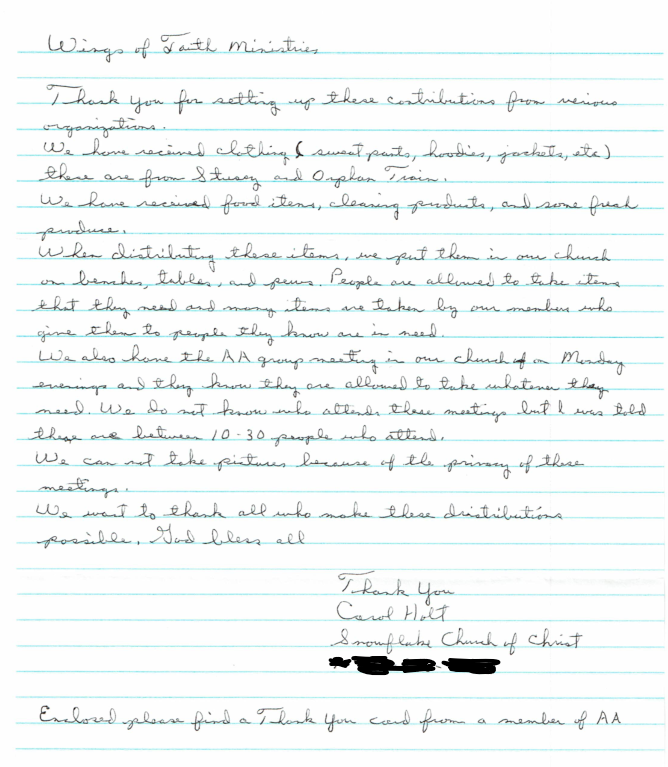 Wings of Faith Ministries
Thank You for setting up these contributions from verious
organizations.
We have received clothing ( sweat pants, hoodies, jackets, etc)
these are from Stusey and Orphan Train.
We have received food items, cleaning products, and some fresh
produce.
When distributing these items, we put them in our church
on benches, tables, and pews. People are allowed to take items
that they need and many items are taken by our members who
give them to people they know are in need.
We also have the AA group meeting in our church on Monday
evenings and they know they are allowed to take whatever they
need. We do not know who attends these meetings but I was told
there are between 10-30 people who attend.
We can not take pictures because of the privacy of these
meetings.
We want to thank all who make these distributions
possible. God bless all
Thank You
Carol Holt
Snowflake Church of Christ
Enclosed please find a Thank You card from a member of AA